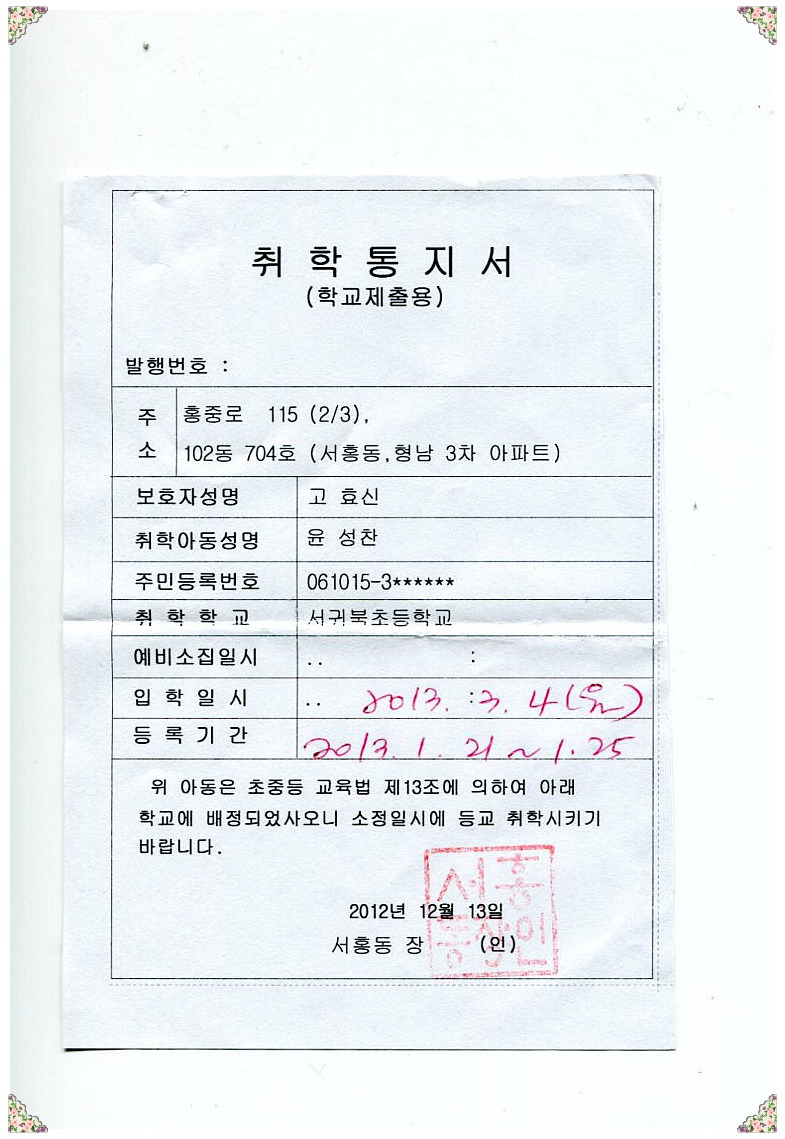 취 학 통 지 서
(학교제출용)
발행번호 :
주 소 홍중로 115 (2/3),
102동 704호 (서홍동,형남 3차 아파트)
보호자성명 고 효신
취학아동성명 윤 성찬
주민등록번호 061015-3******
취 학 학 교 서귀북초등학교
예비소집일시 .. :
입 학 일 시 .. 2013. : 3. 4 (월)
등 록 기 간 2013. 1. 21 ~ 1. 25
위 아동은 초중등 교육법 제13조에 의하여 아래
학교에 배정되었사오니 소정일시에 등교 취학시키기
바랍니다.
2012년 12월 13일
서홍동 장 (인)
서홍
동장인